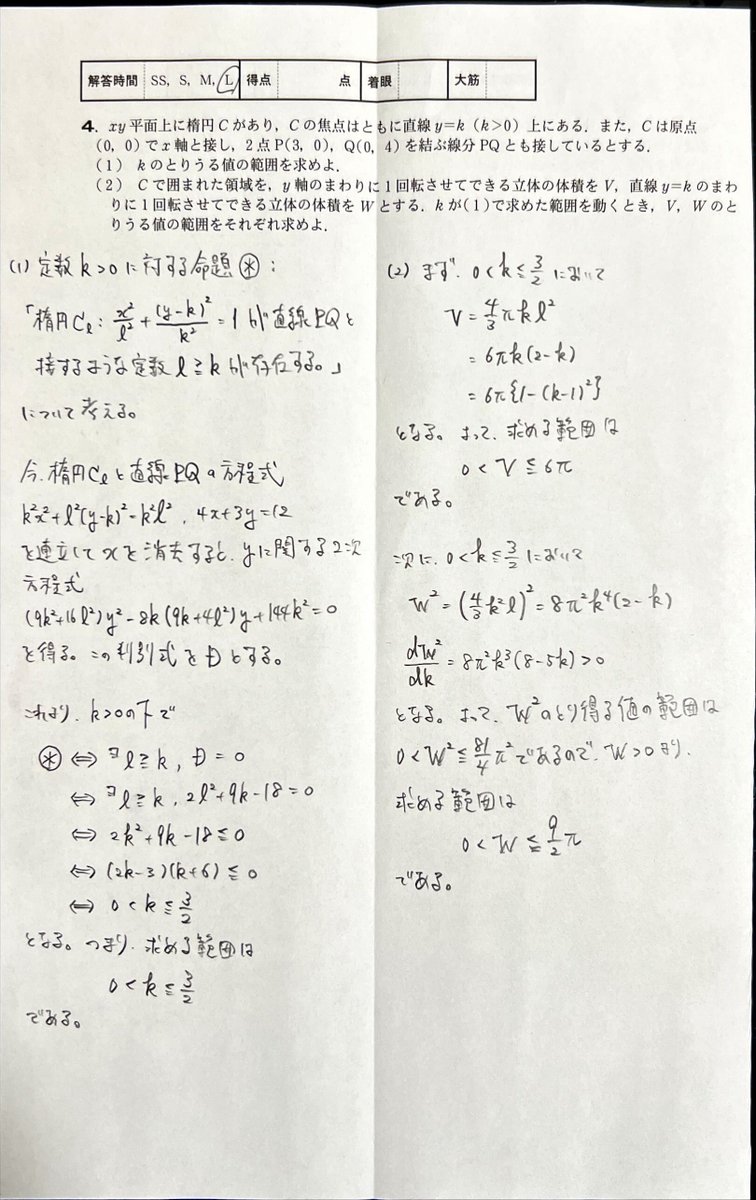 解答時間 SS, S, M, L 得点 点 着眼 大筋
4. xy平面上に楕円Cがあり, Cの焦点はともに直線y=k (k>0) 上にある. また, Cは原点
(0, 0) でx軸と接し, 2点P(3, 0), Q(0, 4) を結ぶ線分PQとも接しているとする.
(1) kのとりうる値の範囲を求めよ.
(2) Cで囲まれた領域を, y軸のまわりに1回転させてできる立体の体積をV, 直線y=kのまわ
りに1回転させてできる立体の体積をWとする. kが(1)で求めた範囲を動くとき, V, Wのと
りうる値の範囲をそれぞれ求めよ.
(1) 定数k>0に対する命題㊛:
「楕円Cℓ: x²/ℓ² + (y-k)²/k² = 1 が直線PQと
接するような定数ℓ≧kが存在する。」
について考える。
今、楕円Cℓと直線PQの方程式
k²x²+ℓ²(y-k)²=k²ℓ², 4x+3y=12
を連立してxを消去すると、yに関する2次
方程式
(9k²+16ℓ²)y²-8k(9k+4ℓ²)y+144k²=0
を得る。この判別式をDとする。
これより、k>0の下で
⊛ ⇔ ∃ℓ≧k, D=0
⇔ ∃ℓ≧k, 2ℓ²+9k-18=0
⇔ 2k²+9k-18≦0
⇔ (2k-3)(k+6)≦0
⇔ 0<k≦3/2
となる。つまり、求める範囲は
0<k≦3/2
である。
(2) まず、0<k≦3/2において
V=4/3πkℓ²
=6πk(2-k)
=6π{1-(k-1)²}
となる。よって、求める範囲は
0<V≦6π
である。
次に、0<k≦3/2において
W²=(4/3k²ℓ)²=8π²k⁴(2-k)
dW²/dk=8π²k³(8-5k)>0
となる。よって、W²のとり得る値の範囲は
0<W²≦81/4π²であるので、W>0より、
求める範囲は
0<W≦9/2π
である。